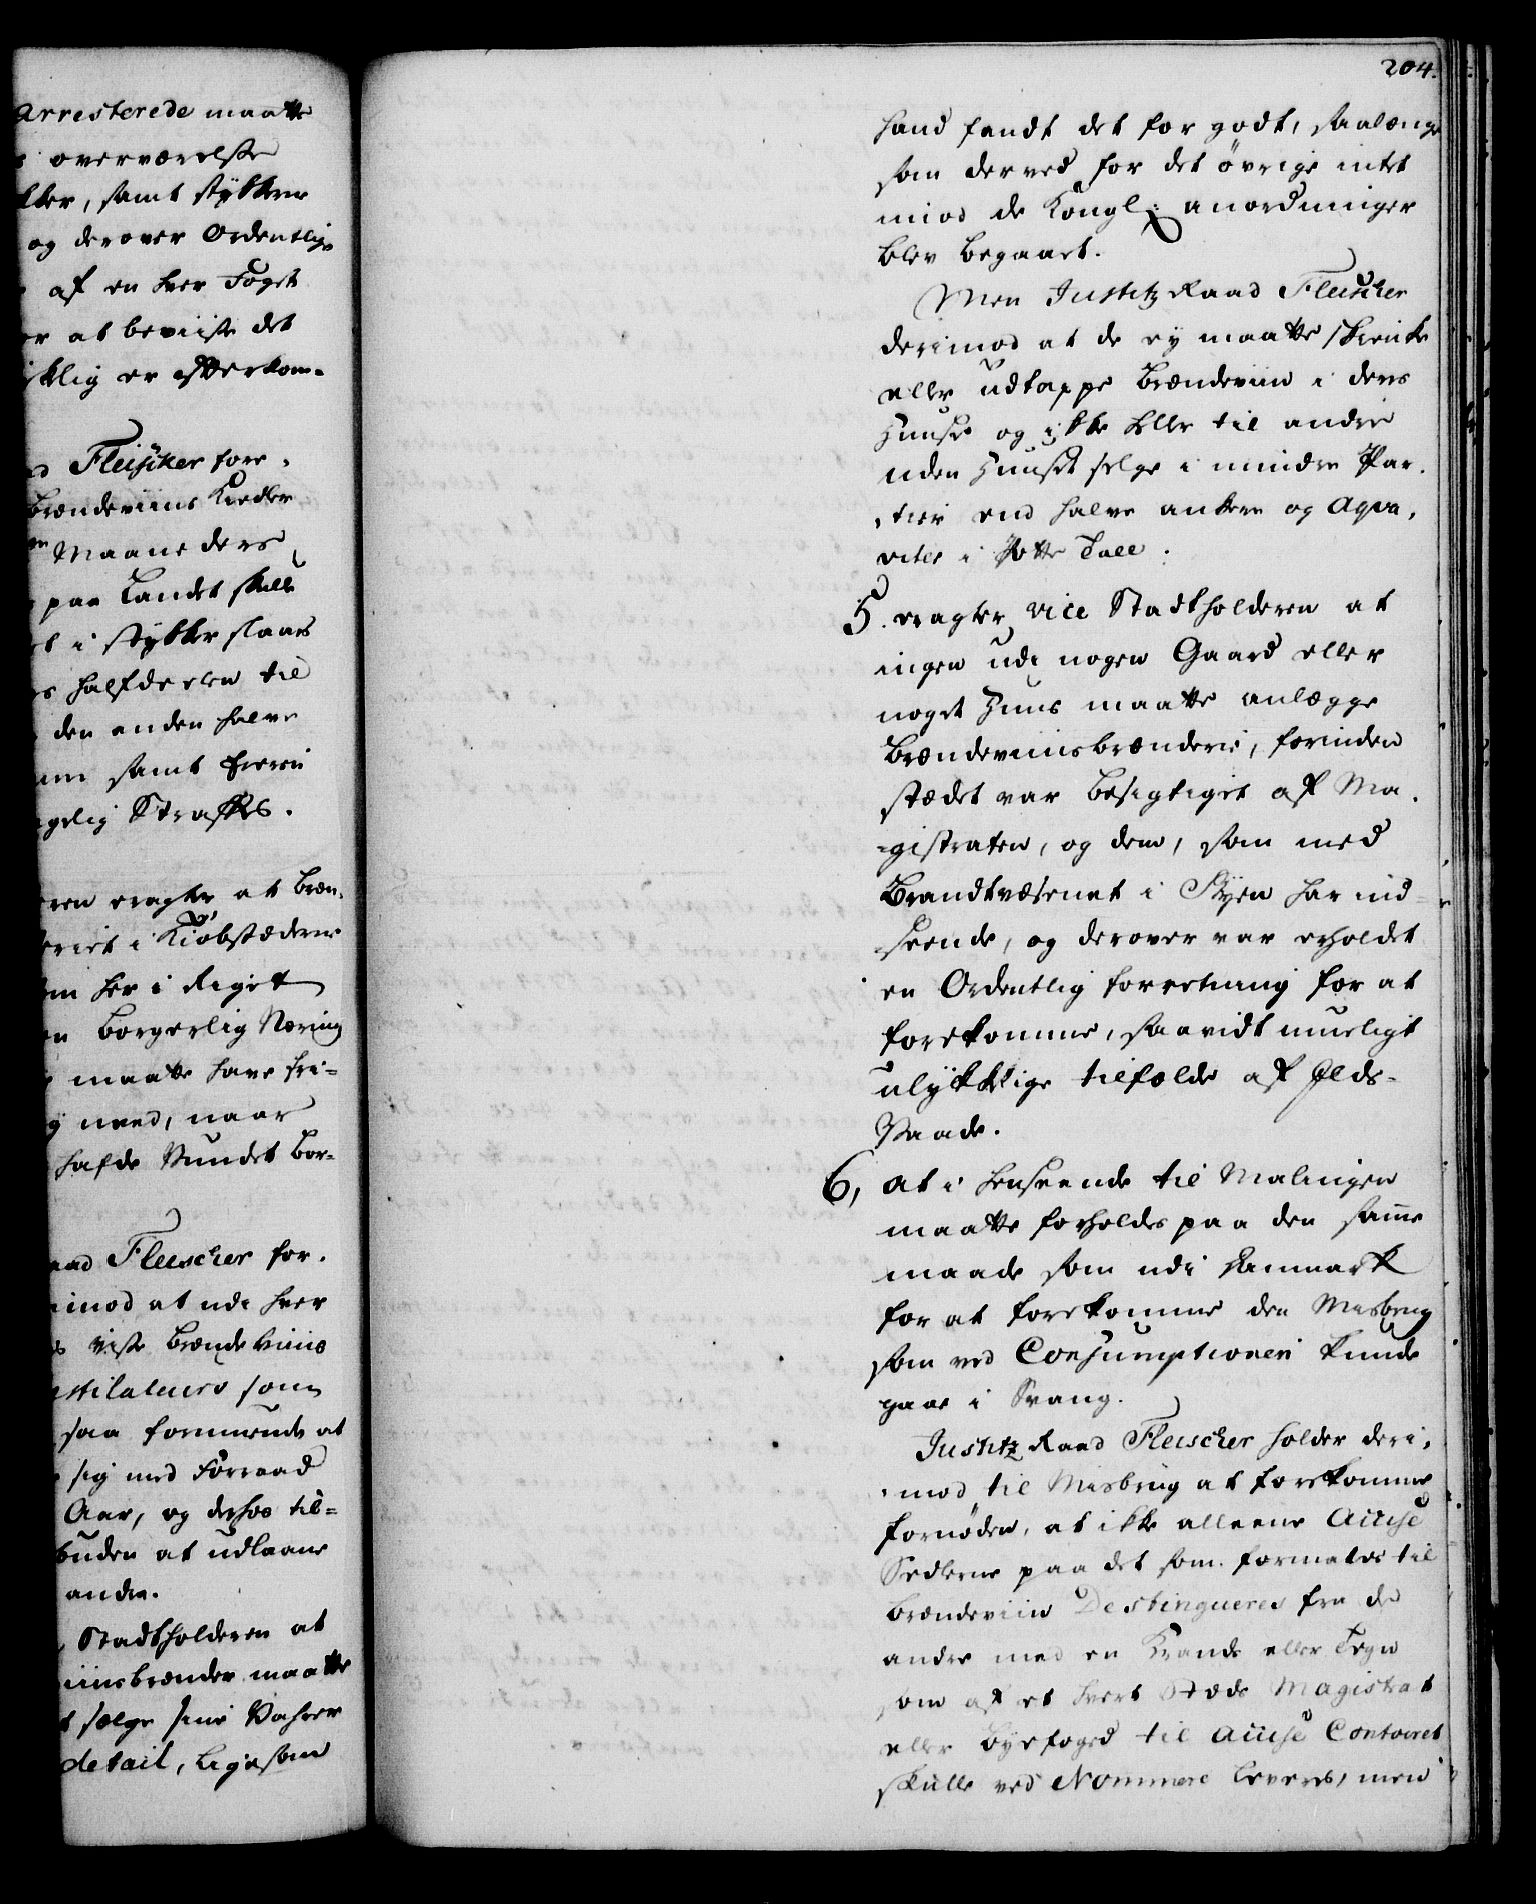 Arresterede maatte
overværelse
samt stykkerne
og derover Ordentlige
af en hver Foget
at beviise det
er efterkom-
Fleischer fore-
Brændeviins Kiedler
Maaneders
paa Landet skulle
i stykker slaaes
halfdeelen til
den anden halve
samt foreen
Straffes.
eragter at Bræn-
i Kiøbstæderne
her i Riget
Borgerlig Næring
maatte have fri-
med, naar
hafde Vundet Bor-
Fleischer for-
imod at udi hver
visse Brændeviins
som
saa formuende at
sig med Forraad
Aar, og derhos til-
buden at udlaane
andre.
Stadtholderen at
iinsbrænder maatte
sælge sine Vahrer
detail, ligesom
204.
hand fandt det for godt, saalænge
som derved for det øvrige intet
mod de Kongl: anordninger
blev begaaet.
Men Justitz Raad Fleischer
derimod at de ey maatte skienke
eller udtappe Brændeviin i deres
Huuse og ikke heller til andre
uden Huuset selge i mindre Par-
-tier end halve ankere og Aqva-
viter i Potte Tall.
5. eragter vice Stadtholderen at
ingen udi nogen Gaard eller
noget Huus maatte anlægge
Brændeviinsbrænderie, forinden
stædet var besigtiget af Ma-
-gistraten, og dem, som med
Brandtvæsenet i Byen har ind-
-seende, og derover var erholdet
en Ordentlig forretning for at
forekomme, saavidt mueligt
ulykkelige tilfælde af Ilds-
Vaade.
6, at i henseende til Malingen
maatte forholdes paa den samme
maade som udi Danmark
for at forekomme den Misbrug
som ved Consumptionen kunde
gaae i Svang.
Justitz Raad Fleischer holder deri-
-mod til Misbrug at forekomme
fornøden, at ikke alleene Accise
Sedlerne paa det som formales til
Brændeviin Destingueres fra de
andre med en Rande eller Tegn
som af et hvert Stæds Magistrat
eller Byefoged til Accise Contoiret
skulle ved Nommere leveres, men